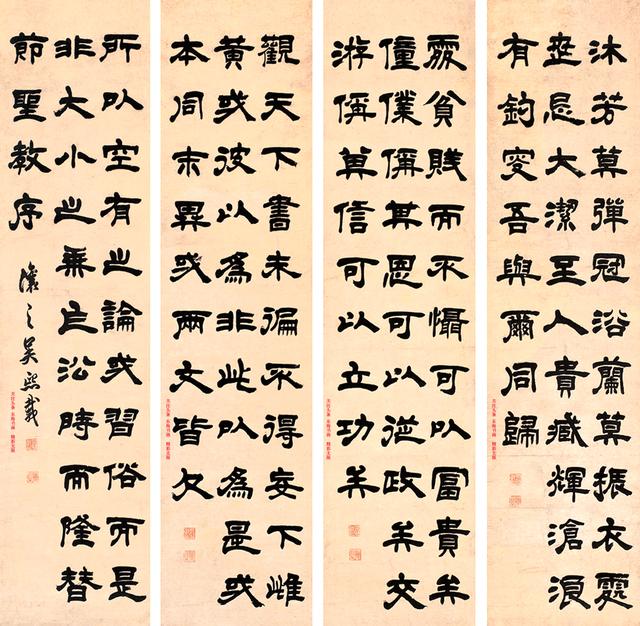 沐芳莫彈冠浴蘭莫振衣處
世忌大潔至人貴藏輝滄浪
有釣叟吾與爾同歸
處貧賤而不懾可以富貴矣
僮僕稱其恩可以從政矣交
游稱其信可以立功矣
觀天下書未徧不得妄下雌
黃或彼以為非此以為是或
本同末異或兩文皆欠
所以空有之論或習俗而是
非大小之乘乍沿時而隆替
節聖教序
讓之吳熙載